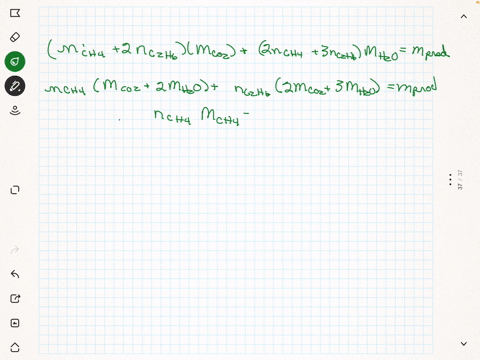 (nCH4 + 2nC2H6)(MCO2) + (2nCH4 + 3nC2H6)MH2O = mprod
nCH4 (MCO2 + 2MH2O) + nC2H6 (2MCO2 + 3MH2O) = mprod
nCH4 MCH4 -
37 / 37